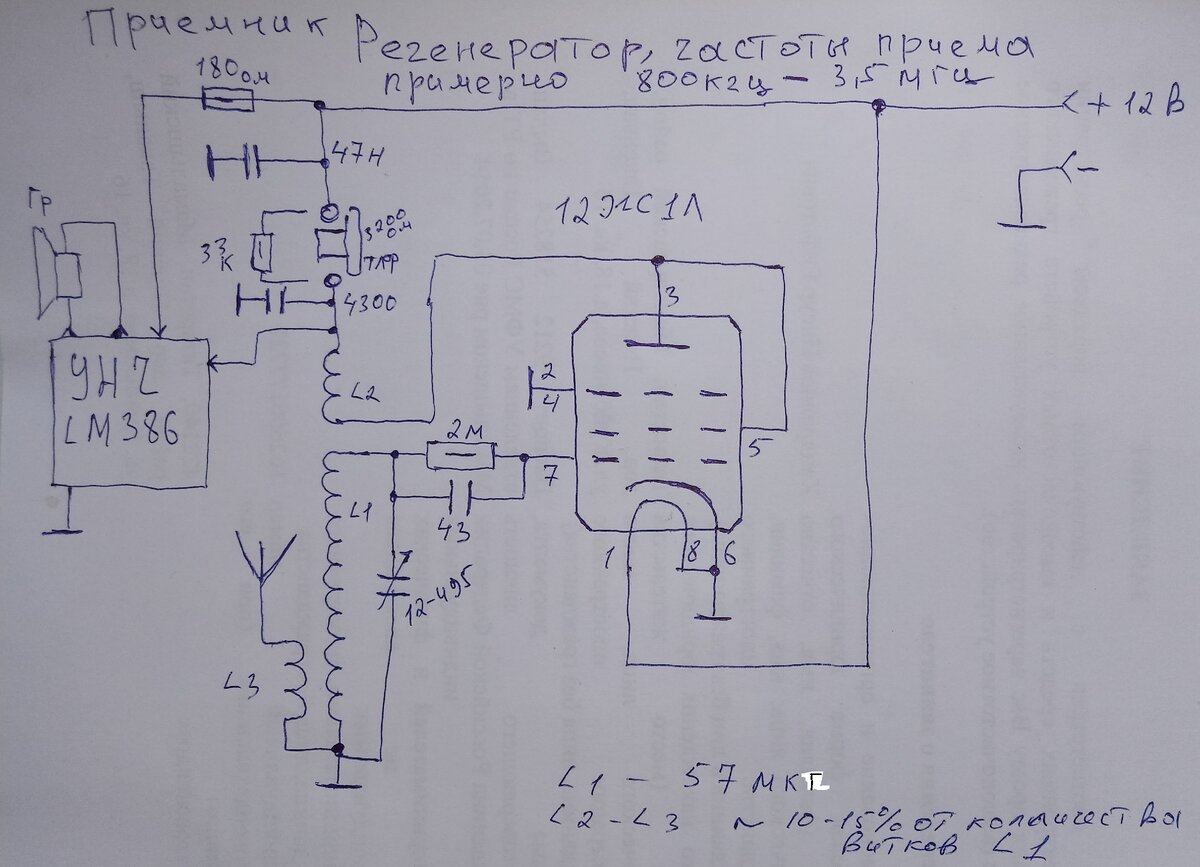 Приемник
Регенератор, частоты приема
примерно 800кгц - 3,5 мгц
180ом
+ 12В
47н
-
Гр
12Ж1Л
33к
3200ом
тлф
3
4300
УНЧ
LM386
L2
2
4
5
2м
7
L1
43
1
8
6
12-495
L3
L1 - 57 мкГ
L2-L3 ~ 10-15% от колличества
витков L1